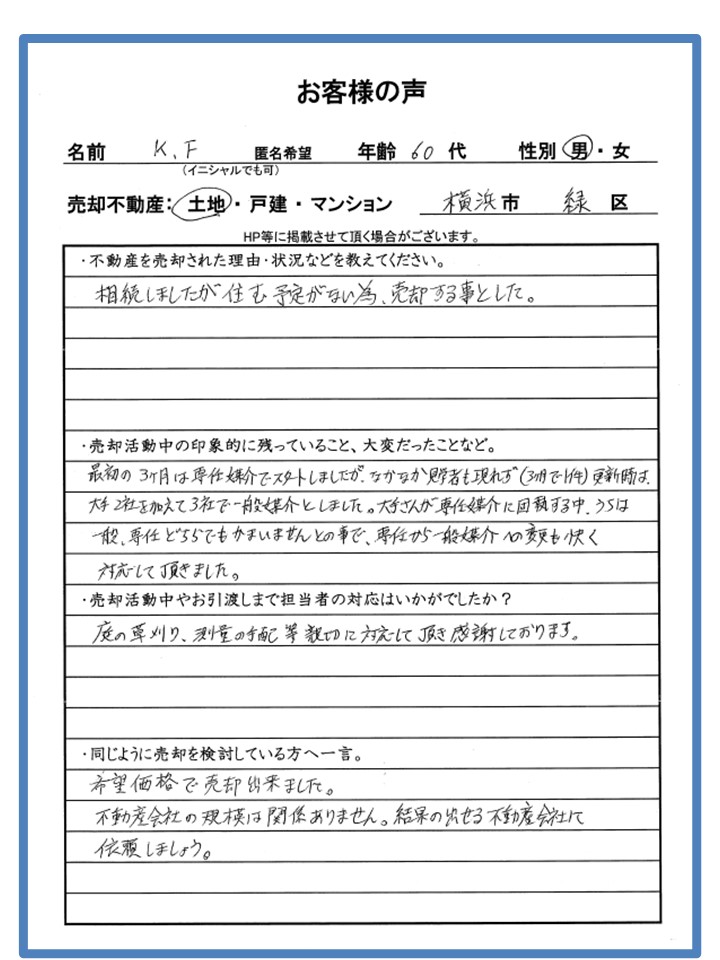 お客様の声
名前 K.F 匿名希望 年齢 60 代 性別 男・女
(イニシャルでも可)
売却不動産：土地・戸建・マンション 横浜市 緑区
HP等に掲載させて頂く場合がございます。
・不動産を売却された理由・状況などを教えてください。
相続しましたが住む予定がない為、売却する事とした。
・売却活動中の印象的に残っていること、大変だったことなど。
最初の3ヶ月は専任媒介でスタートしましたが、なかなか購入者も現れず(3ヶ月で1件)更新時は、
大手2社を加えて3社で一般媒介としました。大手さんが専任媒介に固執する中、うちは
一般、専任どちらでもかまいませんとの事で、専任から一般媒介への変更も快く
対応して頂きました。
・売却活動中やお引渡しまで担当者の対応はいかがでしたか？
庭の草刈り、測量の手配等親切に対応して頂き感謝しております。
・同じように売却を検討している方へ一言。
希望価格で売却出来ました。
不動産会社の規模は関係ありません。結果の出せる不動産会社に
依頼しましょう。